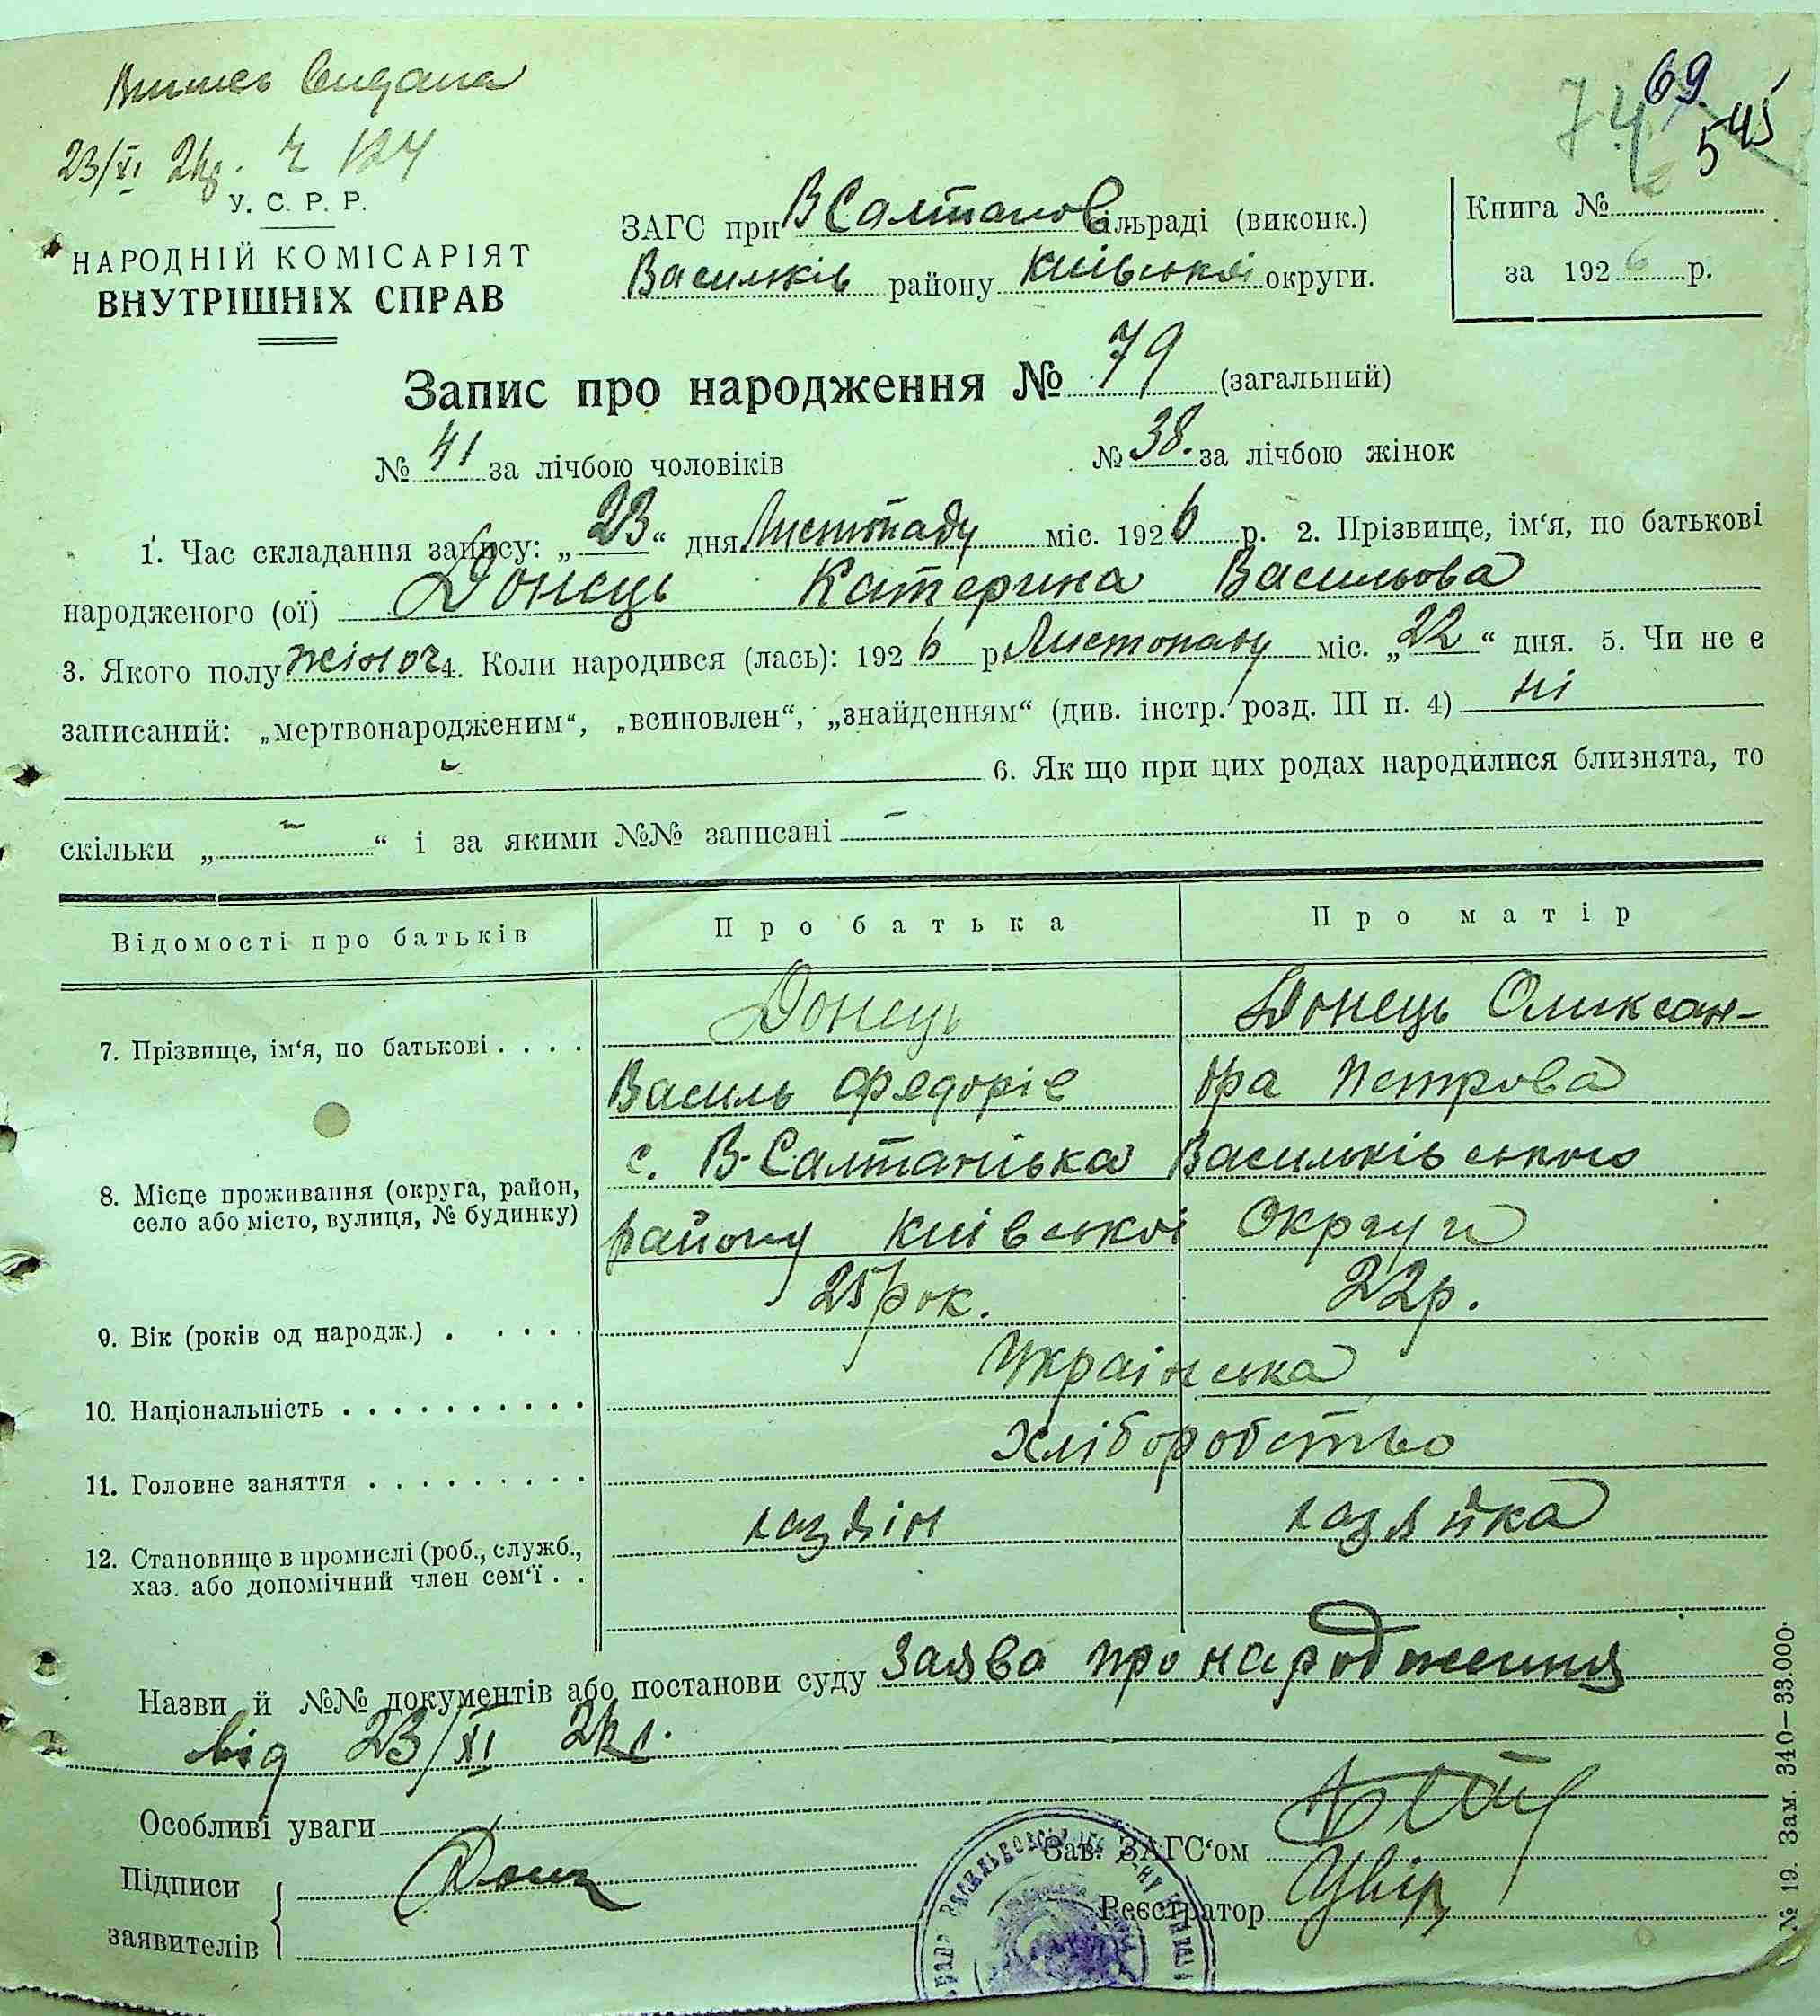 Випись видана
69
74
545
23/XI 26р. Ч 124
У. С. Р. Р.
НАРОДНІЙ КОМІСАРІЯТ
ВНУТРІШНІХ СПРАВ
ЗАГС при ВСалтанов сільраді (виконк.)
Васильків району Київської округи.
Книга №
за 1926 р.
Запис про народження № 79 (загальний)
№ 41 за лічбою чоловіків № 38. за лічбою жінок
1. Час складання запису: „23“ дня Листопаду міс. 1926 р. 2. Прізвище, ім‘я, по батькові
народженого (ої) Донець Катерина Васильова
3. Якого полу жіноч 4. Коли народився (лась): 1926 р. Листопаду міс. „22“ дня. 5. Чи не є
записаний: „мертвонародженим“, „всиновлен“, „знайденням“ (див. інстр. розд. III п. 4) ні
6. Як що при цих родах народилися близнята, то
скільки „ - “ і за якими №№ записані -
Відомості про батьків Про батька Про матір
7. Прізвище, ім‘я, по батькові . . . . Донець Донець Оликсан-
Василь Федорів дра Петрова
8. Місце проживання (округа, район,
село або місто, вулиця, № будинку)
с. В-Салтанівка Васильківського
району Київської Округи
9. Вік (років од народж.) . . . . . 25 рок. 22 р.
10. Національність . . . . . . . . . . Українська
11. Головне заняття . . . . . . . . . Хліборобство
12. Становище в промислі (роб., служб.,
хаз. або допомічний член сем‘ї . .
хазяін хазяйка
Назви й №№ документів або постанови суду Заява про народження
від 23/XI 26р.
Особливі уваги
Підписи
заявителів
Зав. ЗАГС‘ом
Реєстратор
№ 19. Зам. 340—33.000.